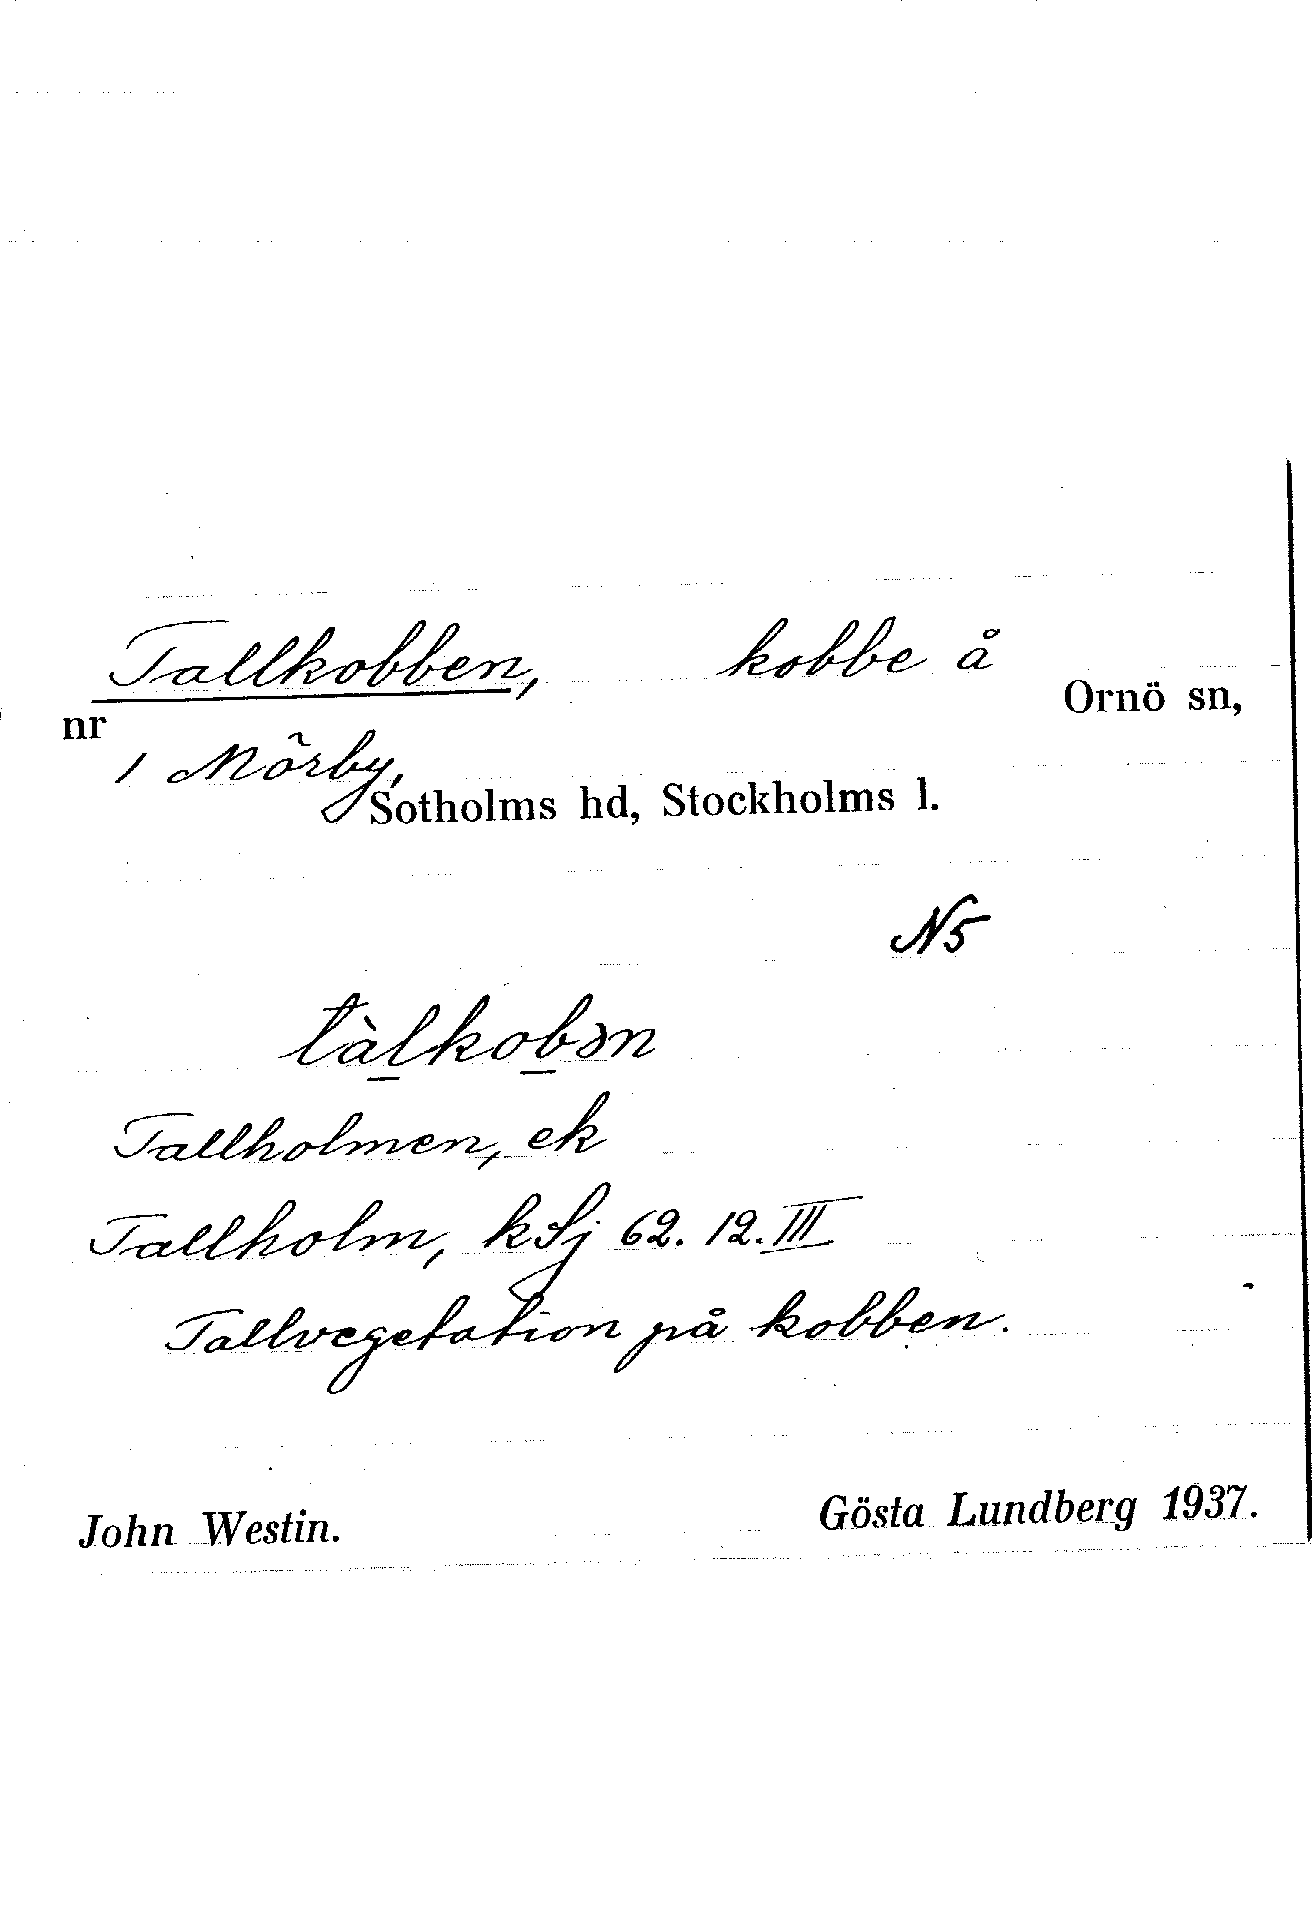 Tallkobben, kobbe å Ornö sn,
nr 1 Mörby,
Sotholms hd, Stockholms l.
N5
tàl̲kob̲ən
Tallholmen, ek
Tallholm, kSj 62. 12. III
Tallvegetation på kobben.
John Westin. Gösta Lundberg 1937.